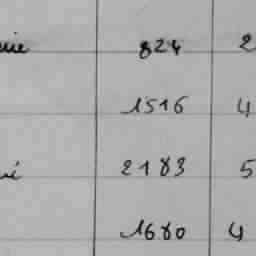 824 2
1516 4
2183 5
1680 4